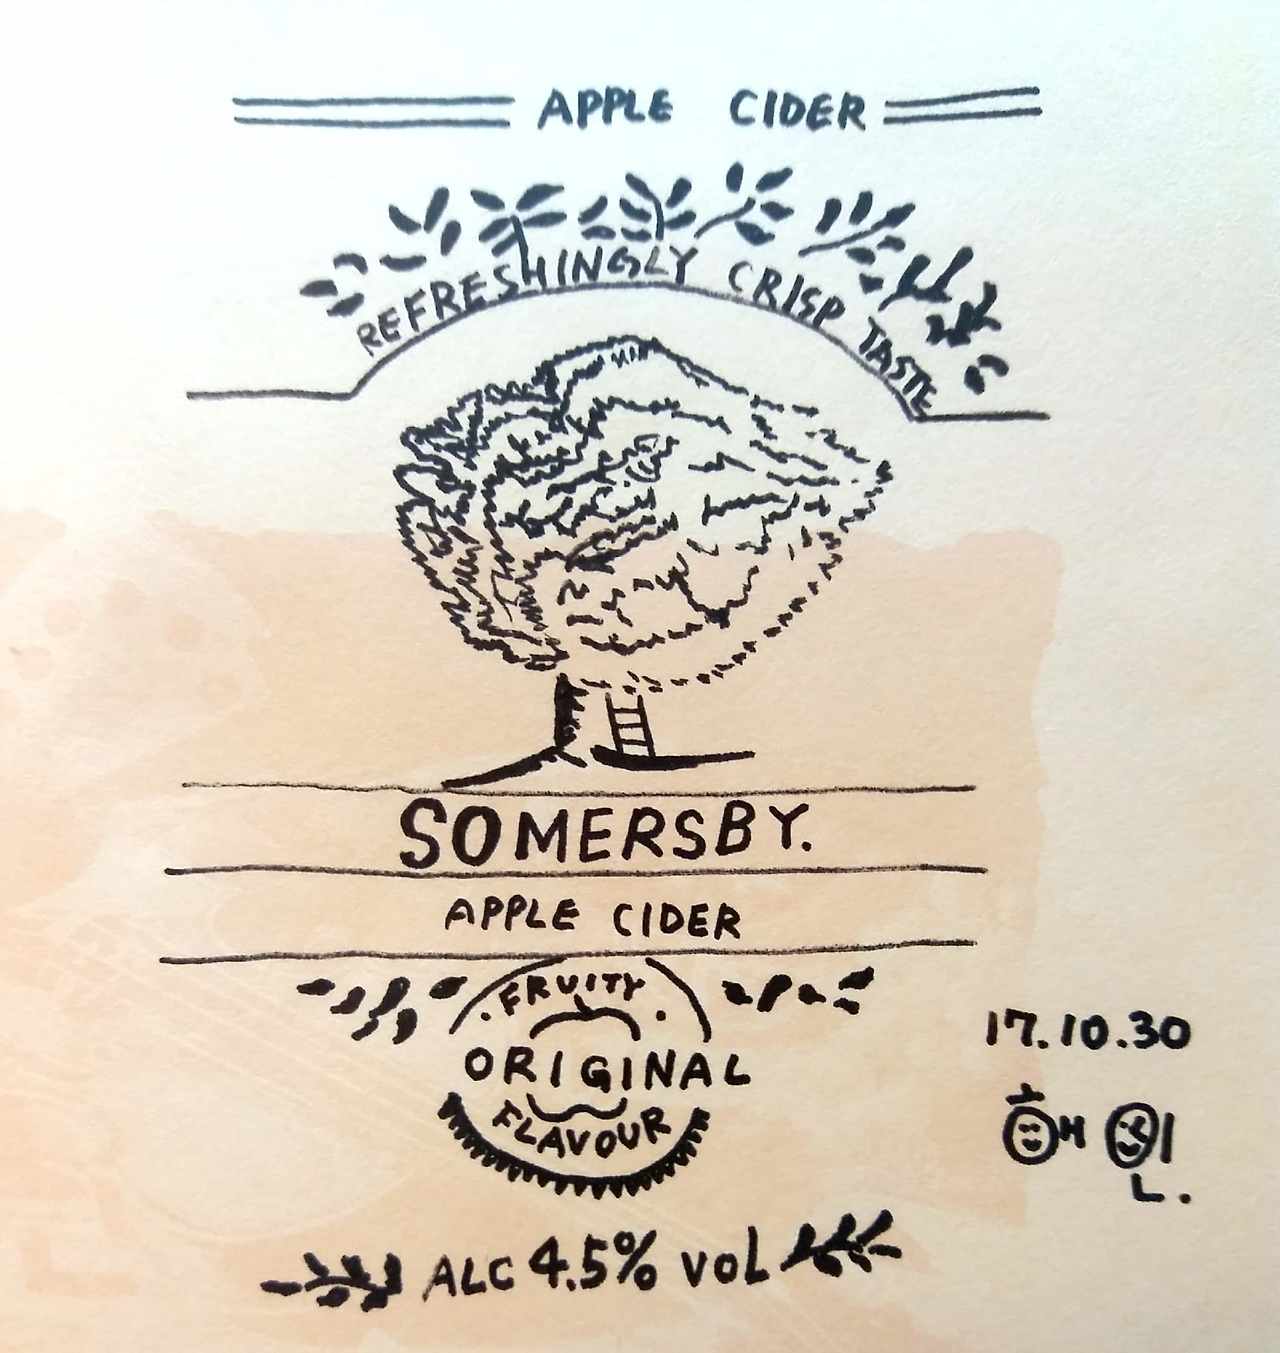 APPLE CIDER
REFRESHINGLY CRISP TASTE
SOMERSBY.
APPLE CIDER
·FRUITY·
ORIGINAL
FLAVOUR
17.10.30
해인.
ALC 4.5% VOL